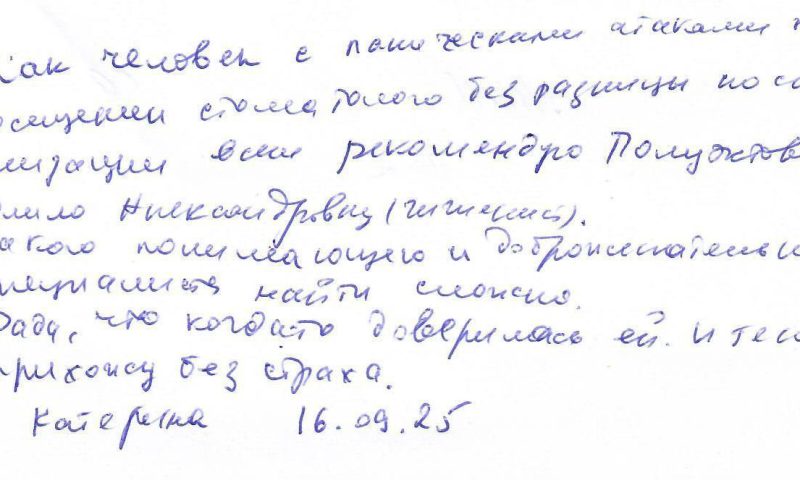 как человек с паническими атаками
осещении стоматолога без разницы по с
лизации всем рекомендую Полуэктов
Александровну (гигиенист).
акого понимающего и доброжелательн
пециалиста найти сложно.
Рада, что когдато доверилась ей. И теп
прихожу без страха.
Катерина 16.09.25